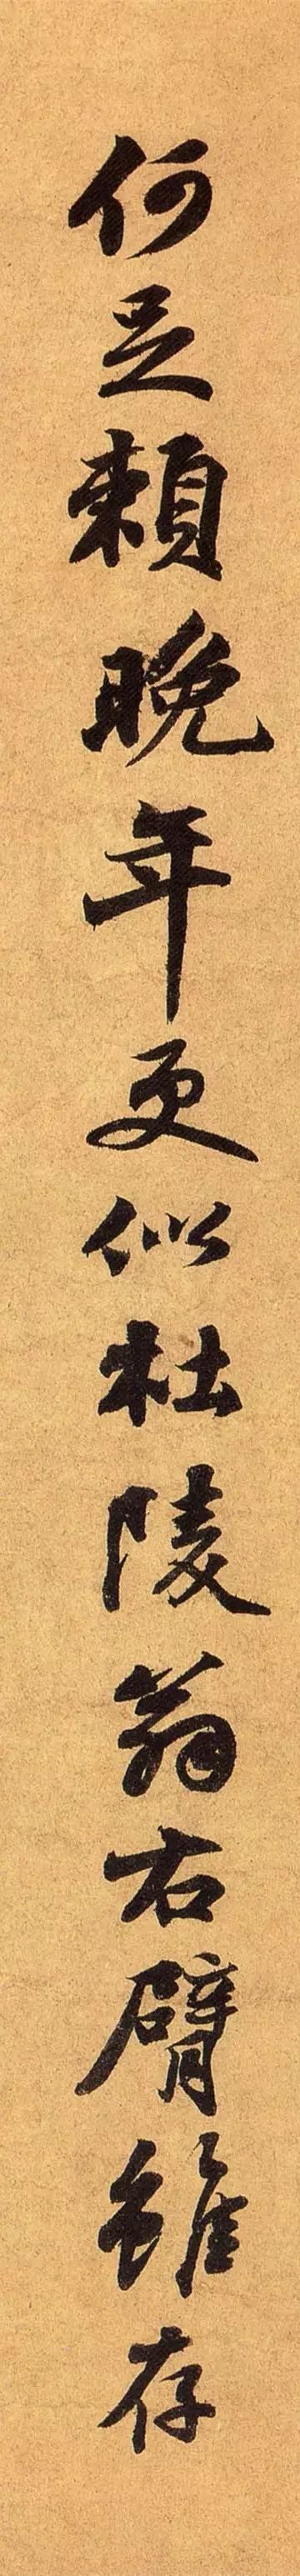 何足頼晩年更似杜陵翁右臂雖存